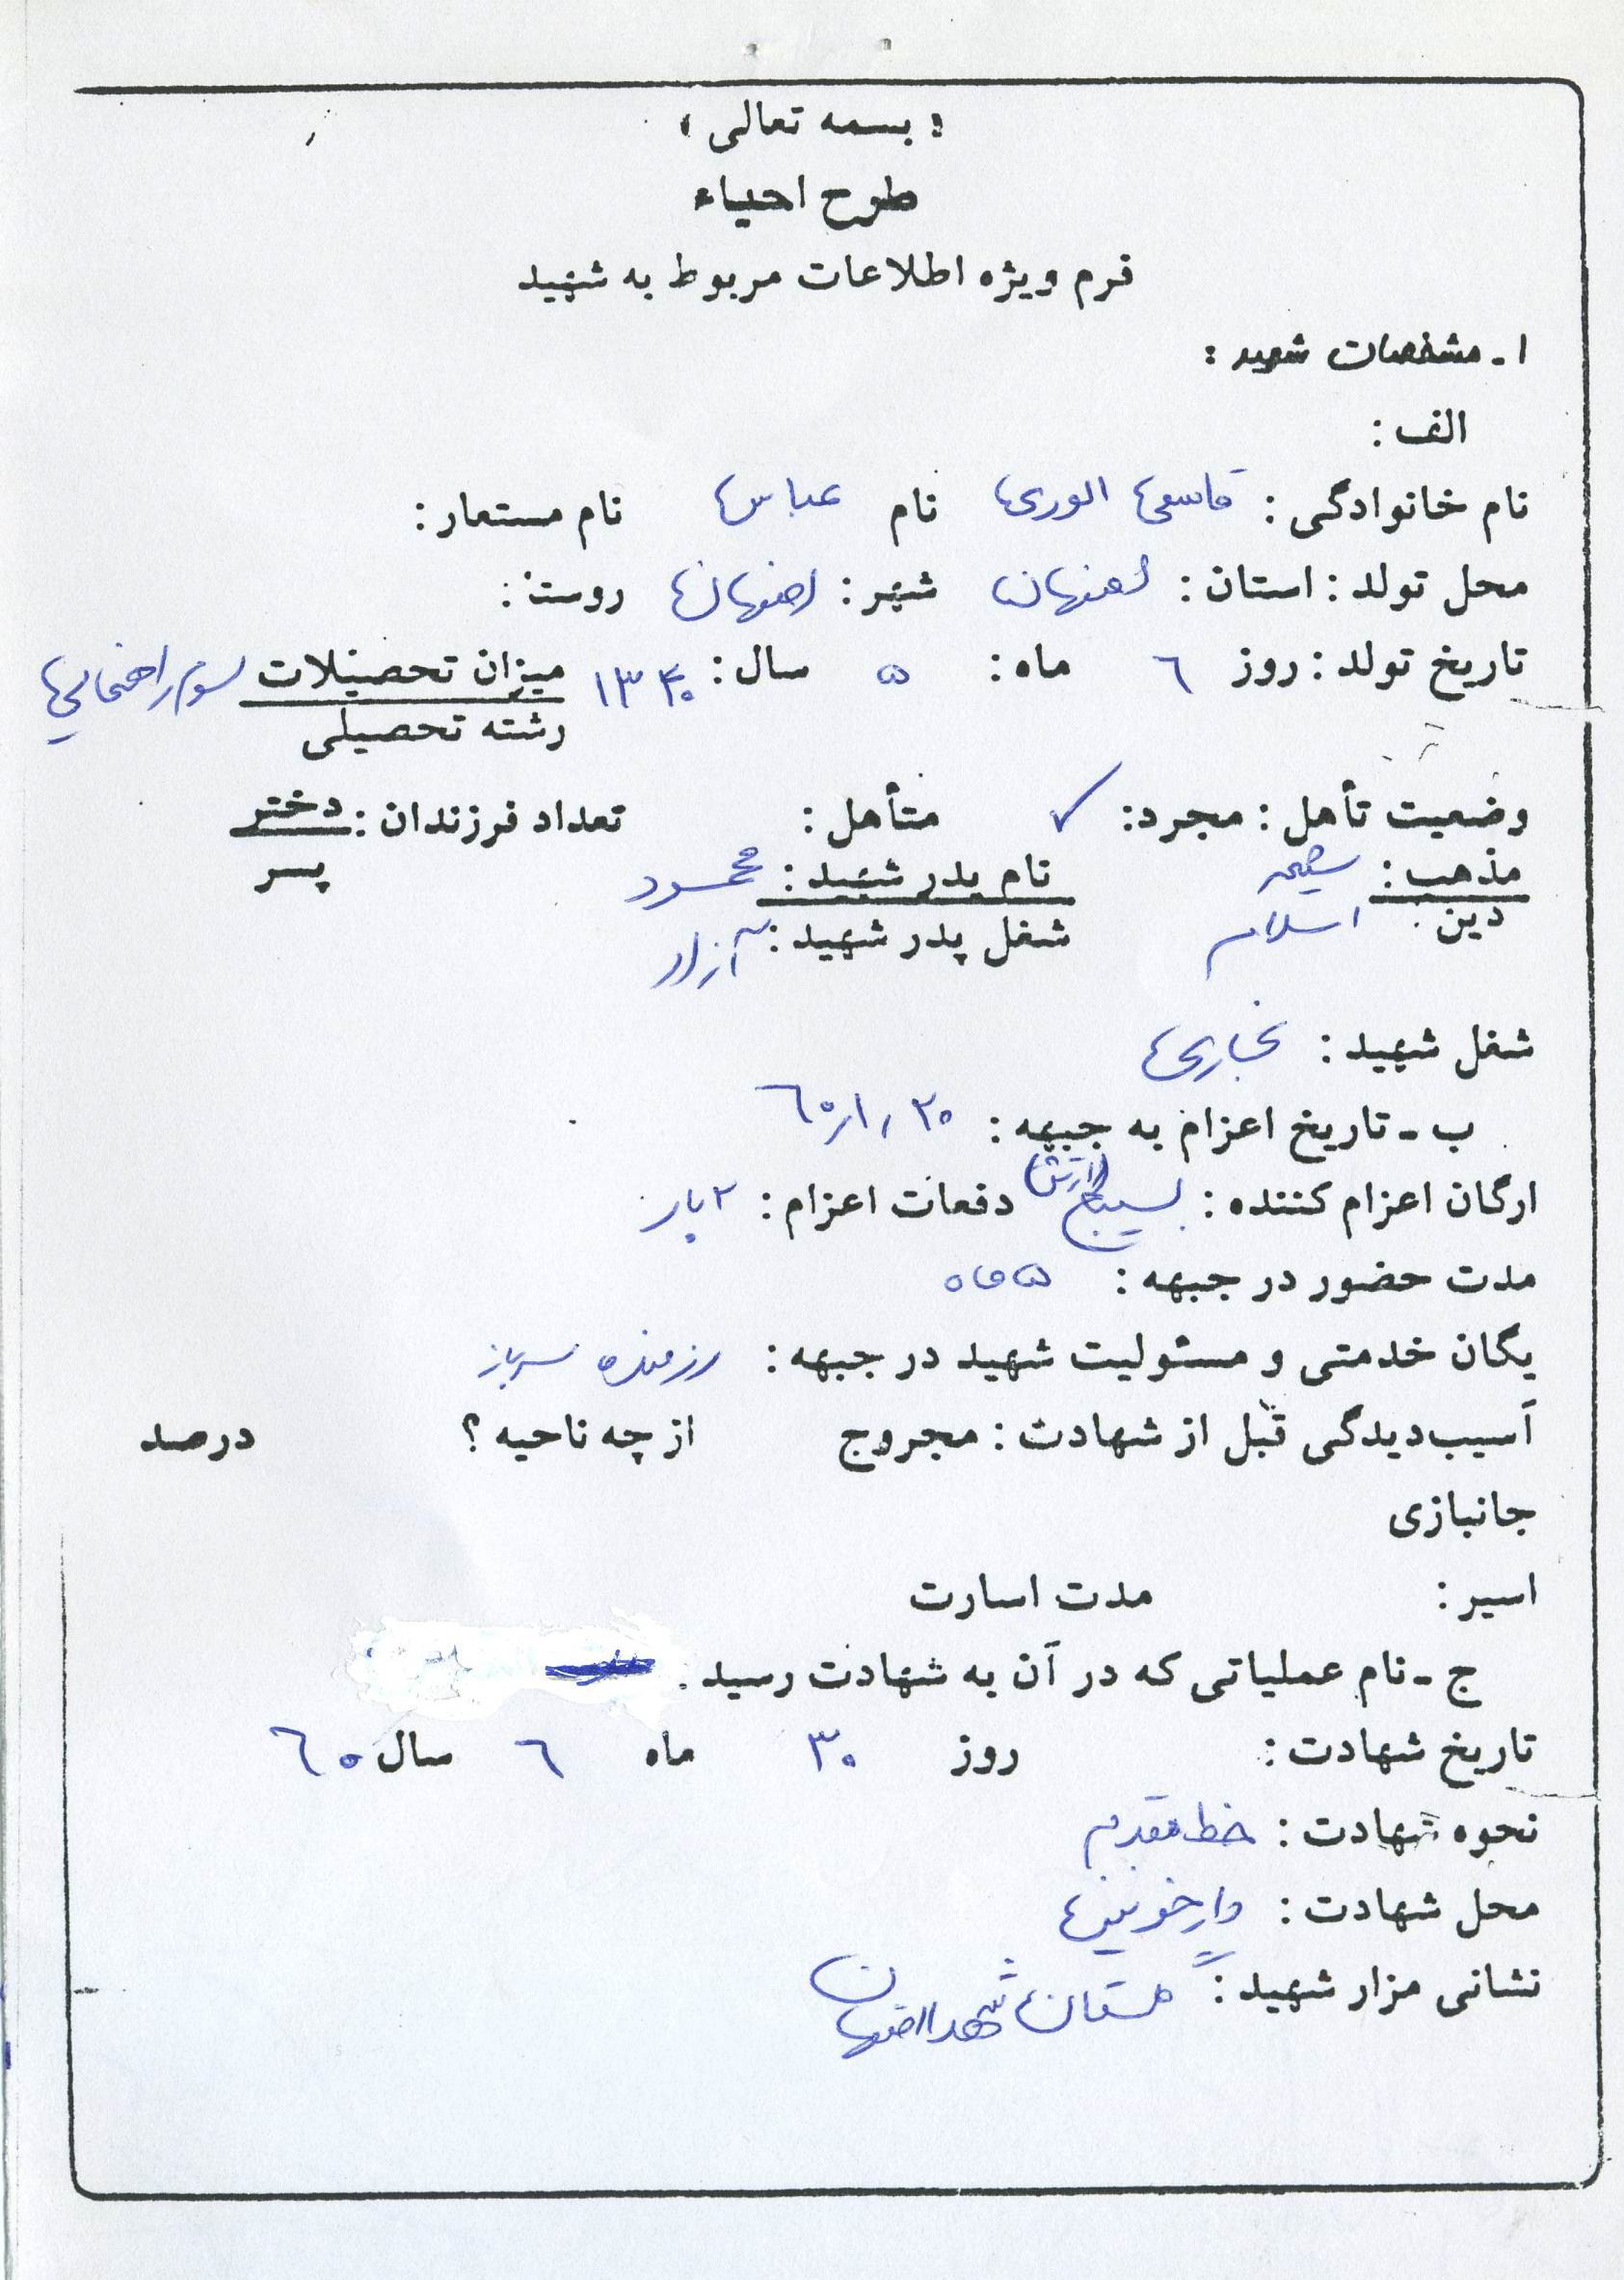 « بسمه تعالی »
طرح احیاء
فرم ویژه اطلاعات مربوط به شهید
۱ـ مشخصات شهید :
الف :
نام خانوادگی : قاسمی الوری نام عباس نام مستعار :
محل تولد : استان : اصفهان شهر : اصفهان روستا :
تاریخ تولد : روز ٦ ماه : ۵ سال : ۱۳۴۰ میزان تحصیلات سوم راهنمایی
رشته تحصیلی
وضعیت تأهل : مجرد : ✓ متأهل : تعداد فرزندان : دختر
پسر
مذهب : شیعه نام پدر شهید : محمود
دین : اسلام شغل پدر شهید : آزاد
شغل شهید : نجاری
ب ـ تاریخ اعزام به جبهه : ٦۰/۱/۲۰
ارگان اعزام کننده : بسیج (ارتش) دفعات اعزام : ۲ بار
مدت حضور در جبهه : ۵ ماه
یگان خدمتی و مسئولیت شهید در جبهه : رزمنده سرباز
آسیب‌دیدگی قبل از شهادت : مجروح از چه ناحیه ؟ درصد
جانبازی
اسیر : مدت اسارت
ج ـ نام عملیاتی که در آن به شهادت رسید :
تاریخ شهادت : روز ۳۰ ماه ٦ سال ٦۰
نحوه شهادت : خط مقدم
محل شهادت : دارخوین
نشانی مزار شهید : گلستان شهدا اصفهان